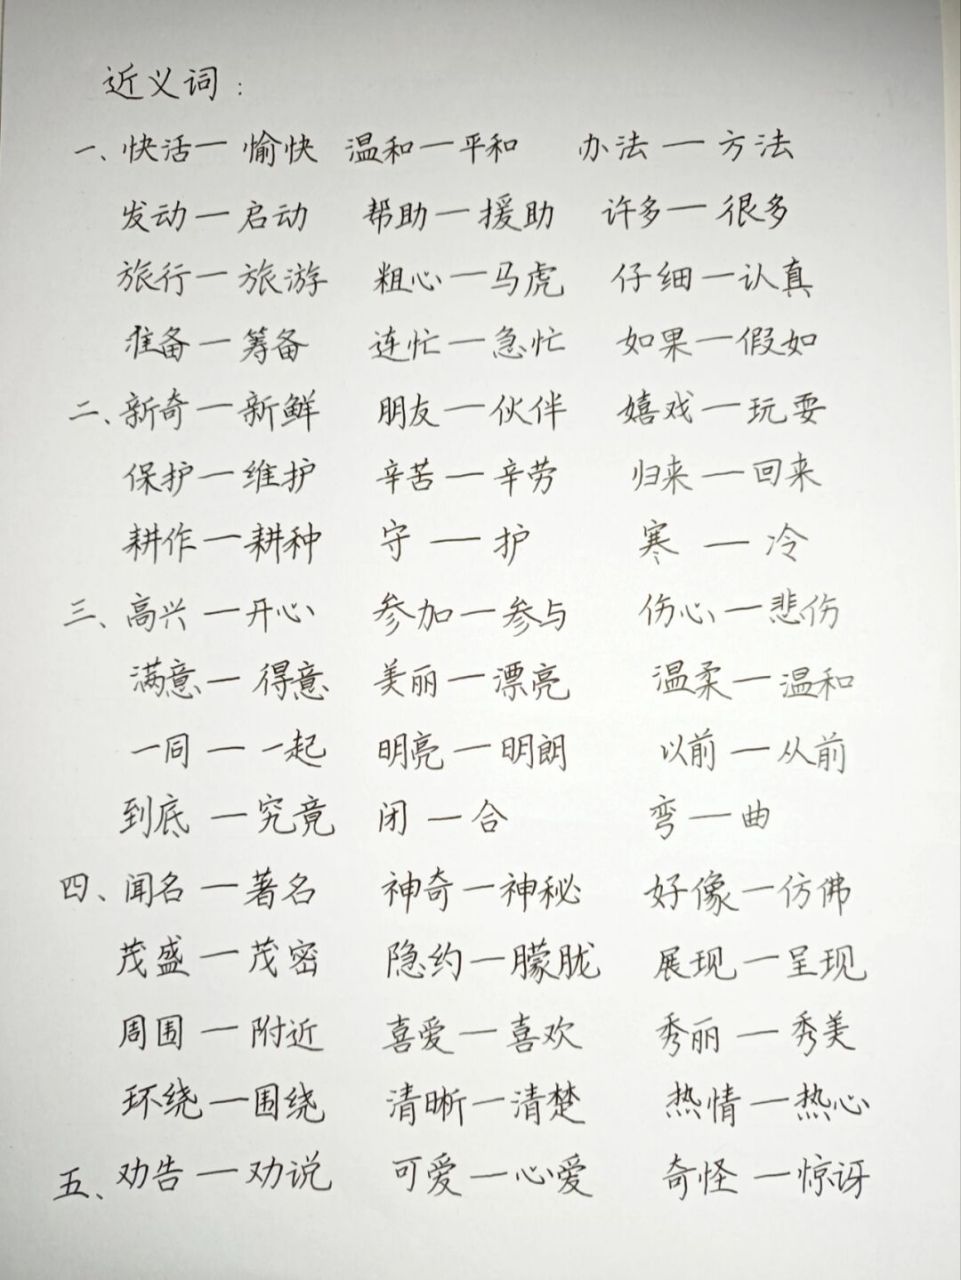 近义词:
一、快活—愉快 温和—平和 办法—方法
发动—启动 帮助—援助 许多—很多
旅行—旅游 粗心—马虎 仔细—认真
准备—筹备 连忙—急忙 如果—假如
二、新奇—新鲜 朋友—伙伴 嬉戏—玩耍
保护—维护 辛苦—辛劳 归来—回来
耕作—耕种 守—护 寒—冷
三、高兴—开心 参加—参与 伤心—悲伤
满意—得意 美丽—漂亮 温柔—温和
一同—一起 明亮—明朗 以前—从前
到底—究竟 闭—合 弯—曲
四、闻名—著名 神奇—神秘 好像—仿佛
茂盛—茂密 隐约—朦胧 展现—呈现
周围—附近 喜爱—喜欢 秀丽—秀美
环绕—围绕 清晰—清楚 热情—热心
五、劝告—劝说 可爱—心爱 奇怪—惊讶